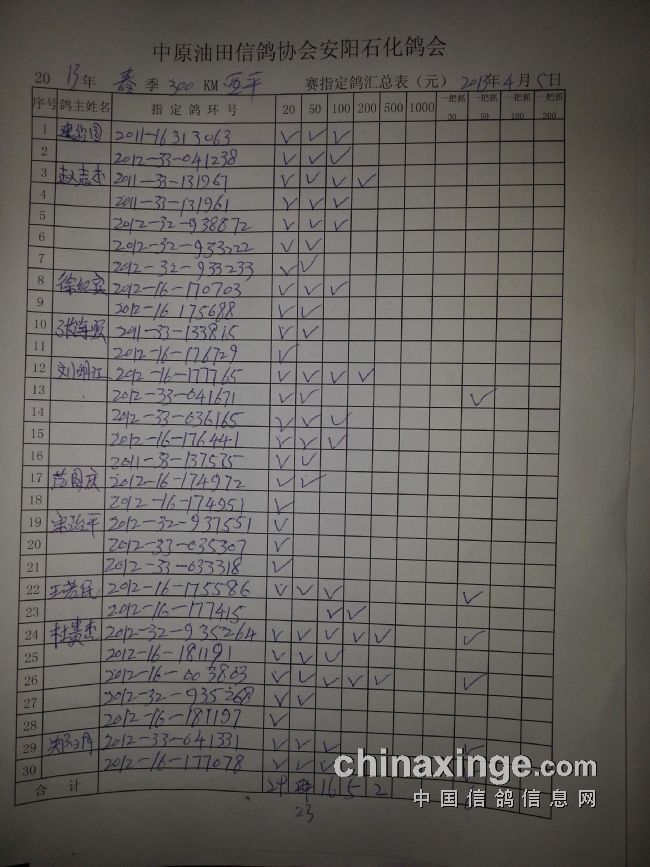 中原油田信鸽协会安阳石化鸽会
20 13年 春季 300 KM 西平 赛指定鸽汇总表（元） 2013年4月5日
序号 鸽主姓名 指定鸽环号 20 50 100 200 500 1000 一把抓 30 一把抓 50 一把抓 100 一把抓 200
1 2011-16313063 √ √ √
2 2012-33-041238 √ √ √
3 赵志杰 2011-33-131967 √ √ √ √
4 2011-33-131961 √ √ √
5 2012-32-938872 √ √ √
6 2012-32-933222 √ √
7 2012-32-933233 √ √
8 2012-16-170703 √ √ √
9 2012-16 175688 √ √
10 2011-33-133815 √ √
11 2012-16-176729 √
12 2012-16-177765 √ √ √ √
13 2012-33-041671 √ √ √
14 2012-33-036165 √ √ √
15 2012-16-176441 √ √ √
16 2011-3-137575 √ √
17 范国庆 2012-16-174972 √ √
18 2012-16-174951 √
19 宋治平 2012-32-937551 √
20 2012-33-035307 √
21 2012-33-033318 √
22 2012-16-175586 √ √ √ √
23 2012-16-177415 √ √
24 杜贵杰 2012-32-935264 √ √ √ √ √ √
25 2012-16-181191 √ √ √
26 2012-16-003803 √ √ √ √ √ √
27 2012-32-935268 √ √
28 2012-16-181197 √
29 2012-33-041331 √ √ √ √
30 2012-16-177078 √ √ √
合计 16 5 2
23
chinaxinge.com
中国信鸽信息网